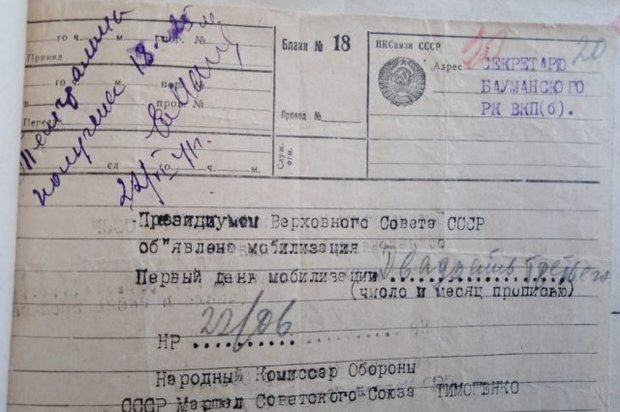 го ч. м. Гор. №
Принял
го ч. м. пер.
в пров. №
Передал
сл. го ч. м.
Телеграмма
получена 18
22/VI 41г.
Бланк № 18
Провод №
Служ. отм.
НКСвязи СССР
20
Адрес СЕКРЕТАРЮ
БАУМАНСКОГО
РК ВКП(б).
Президиумом Верховного Совета СССР
об"явлена мобилизация
Первый день мобилизации Двадцать третьего
(число и месяц прописью)
НР 22/06
Народный Комиссар Обороны
СССР Маршал Советского Союза ТИМОШЕНКО